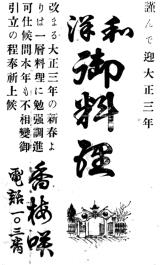 謹んで迎大正三年
和洋
御料理
改まる大正三年の新春よ
りは一層料理に勉强調進
可仕候間本年も不相變御
引立の程奉祈上候
香梅咲
電話一〇三番